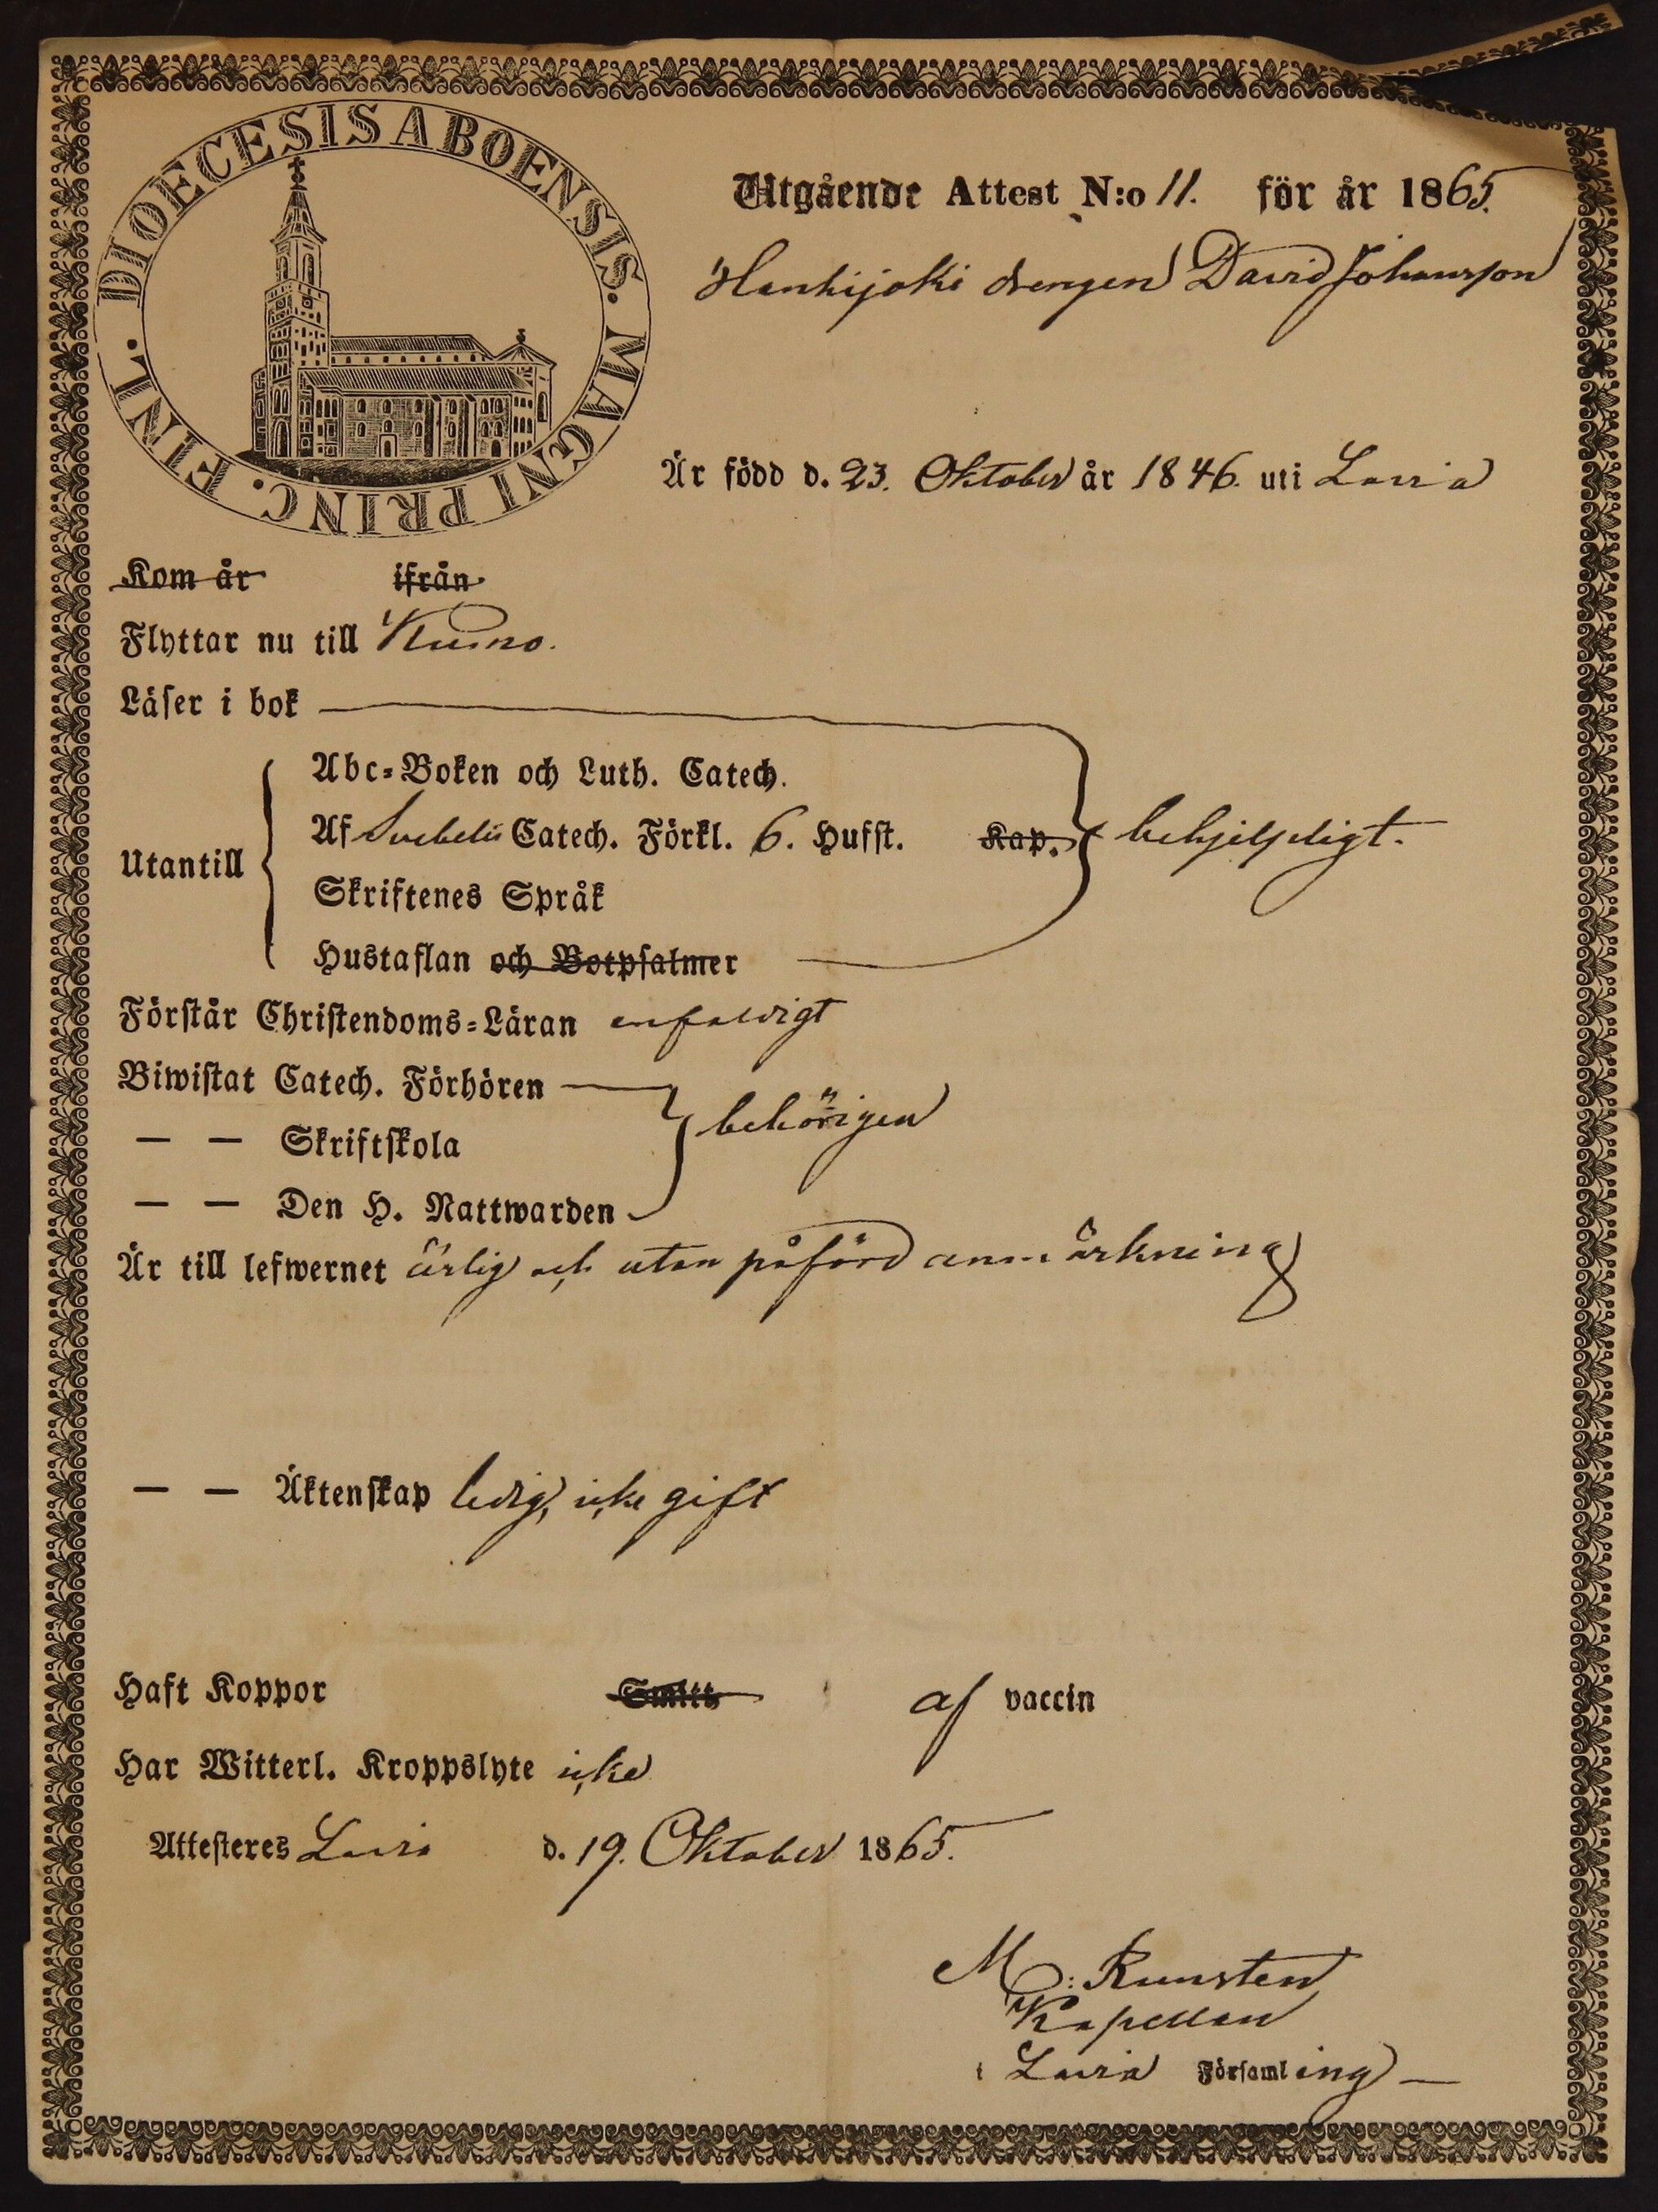 DIOECESIS ABOENSIS. MAGNI PRINC. FINL.
Utgående Attest N:o 11. för år 1865.
Honkijoki drengen David Johansson
Är född d. 23. Oktober år 1846. uti Lavia
Kom år ifrån
Flyttar nu till Kumo.
Läser i bok
Abc=Boken och Luth. Catech.
Af Svebelii Catech. Förkl. 6. Hufst. Kap. behjelpligt.
Utantill
Skriftenes Språk
Hustaflan och Botpsalmer
Förstår Christendoms=Läran enfaldigt
Biwistat Catech. Förhören
— — Skriftskola behörigen
— — Den H. Nattwarden
Är till lefwernet ärlig och utan påförd anmärkning
— — Äktenskap ledig, icke gift
Haft Koppor Smitt af vaccin
Har Witterl. Kroppslyte icke
Attesteres Lavia d. 19. Oktober 1865.
M: Runsten
Kapellan
i Lavia Församling —